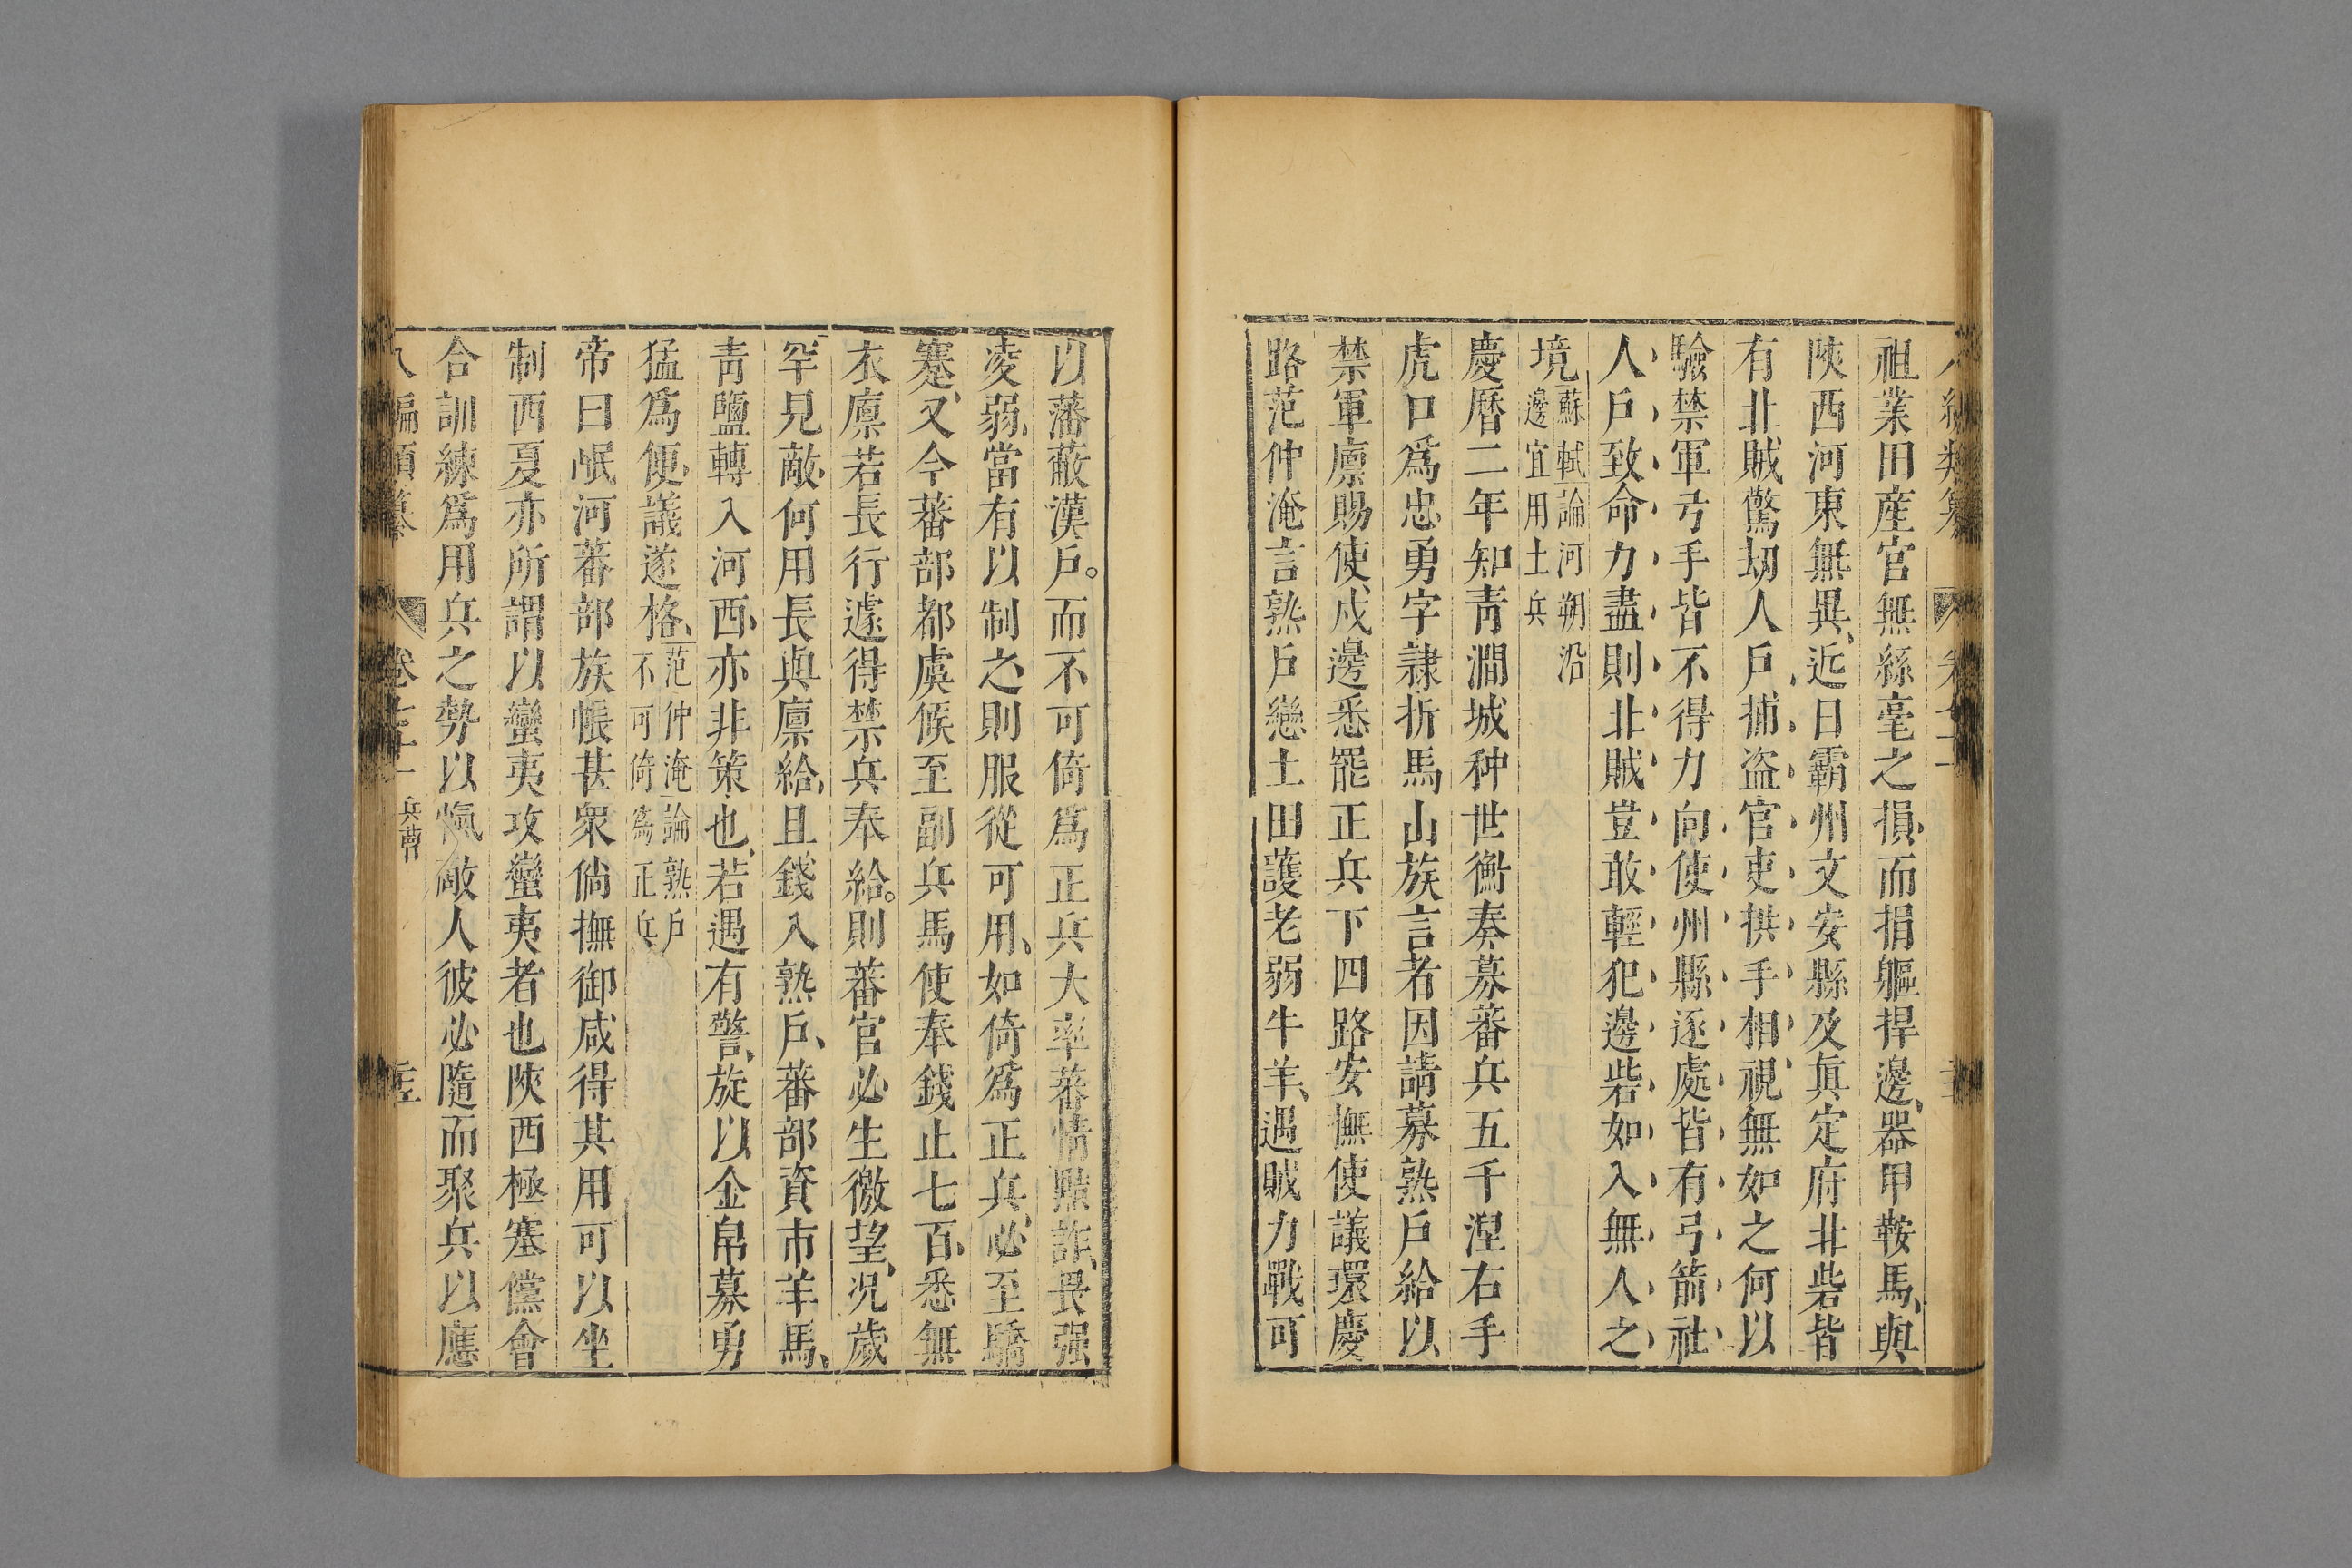 祖業田産官無絲毫之損而捐軀捍邊器甲鞍馬與
陜西河東無異近日霸州文安縣及眞定府北砦皆
有北賊驚刼人戶捕盜官吏拱手相視無如之何以
驗禁軍弓手皆不得力向使州縣逐處皆有弓箭社
人戶致命力盡則北賊豈敢輕犯邊砦如入無人之
境
蘇軾論河朔沿
邊宜用土兵
慶曆二年知青澗城种世衡奏募蕃兵五千涅右手
虎口爲忠勇字隷折馬山族言者因請募熟戶給以
禁軍廪賜使戍邊悉罷正兵下四路安撫使議環慶
路范仲淹言熟戶戀土田護老弱牛羊遇賊力戰可
以藩蔽漢戶而不可倚爲正兵大率蕃情黠詐畏强
凌弱當有以制之則服從可用如倚爲正兵必至驕
蹇又今蕃部都虞候至副兵馬使奉錢止七百悉無
衣廪若長行遽得禁兵奉給則蕃官必生徼望况歲
罕見敵何用長與廪給且錢入熟戶蕃部資市羊馬
青鹽轉入河西亦非策也若遇有警旋以金帛募勇
猛爲便議遂格
范仲淹論熟戶
不可倚爲正兵
帝曰岷河蕃部族帳甚衆倘撫御咸得其用可以坐
制西夏亦所謂以蠻夷攻蠻夷者也陜西極塞儻會
合訓練爲用兵之勢以慴敵人彼必隨而聚兵以應
八編類纂 卷七十一 兵曹